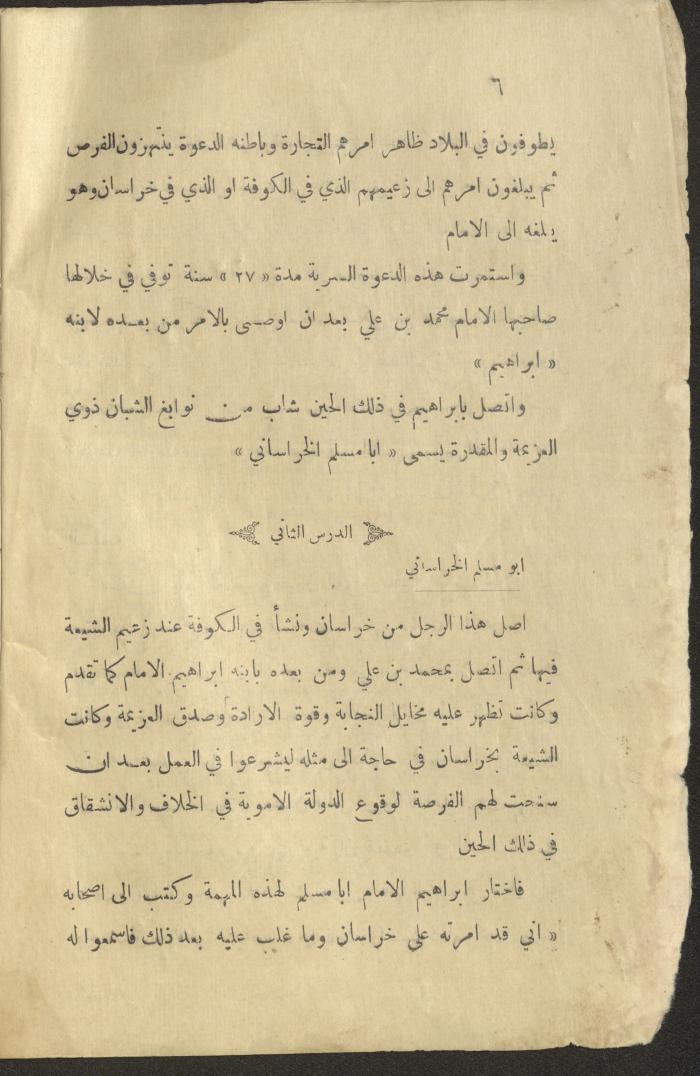 ٦
يطوفون في البلاد ظاهر امرهم التجارة وباطنه الدعوة ينتهزون الفرص
ثم يبلغون امرهم الى زعيمهم الذي في الكوفة او الذي في خراسان وهو
يبلغه الى الامام
واستمرت هذه الدعوة السرية مدة « ٢٧ » سنة توفي في خلالها
صاحبها الامام محمد بن علي بعد ان اوصى بالامر من بعده لابنه
« ابراهيم »
واتصل بابراهيم في ذلك الحين شاب من نوابغ الشبان ذوي
العزيمة والمقدرة يسمى « ابا مسلم الخراساني »
الدرس الثاني
ابو مسلم الخراساني
اصل هذا الرجل من خراسان ونشأ في الكوفة عند زعيم الشيعة
فيها ثم اتصل بمحمد بن علي ومن بعده بابنه ابراهيم الامام كما تقدم
وكانت تظهر عليه مخايل النجابة وقوة الارادة وصدق العزيمة وكانت
الشيعة بخراسان في حاجة الى مثله ليشرعوا في العمل بعد ان
سنحت لهم الفرصة لوقوع الدولة الاموية في الخلاف والانشقاق
في ذلك الحين
فاختار ابراهيم الامام ابا مسلم لهذه المهمة وكتب الى اصحابه
« اني قد امرته على خراسان وما غلب عليه بعد ذلك فاسمعوا له